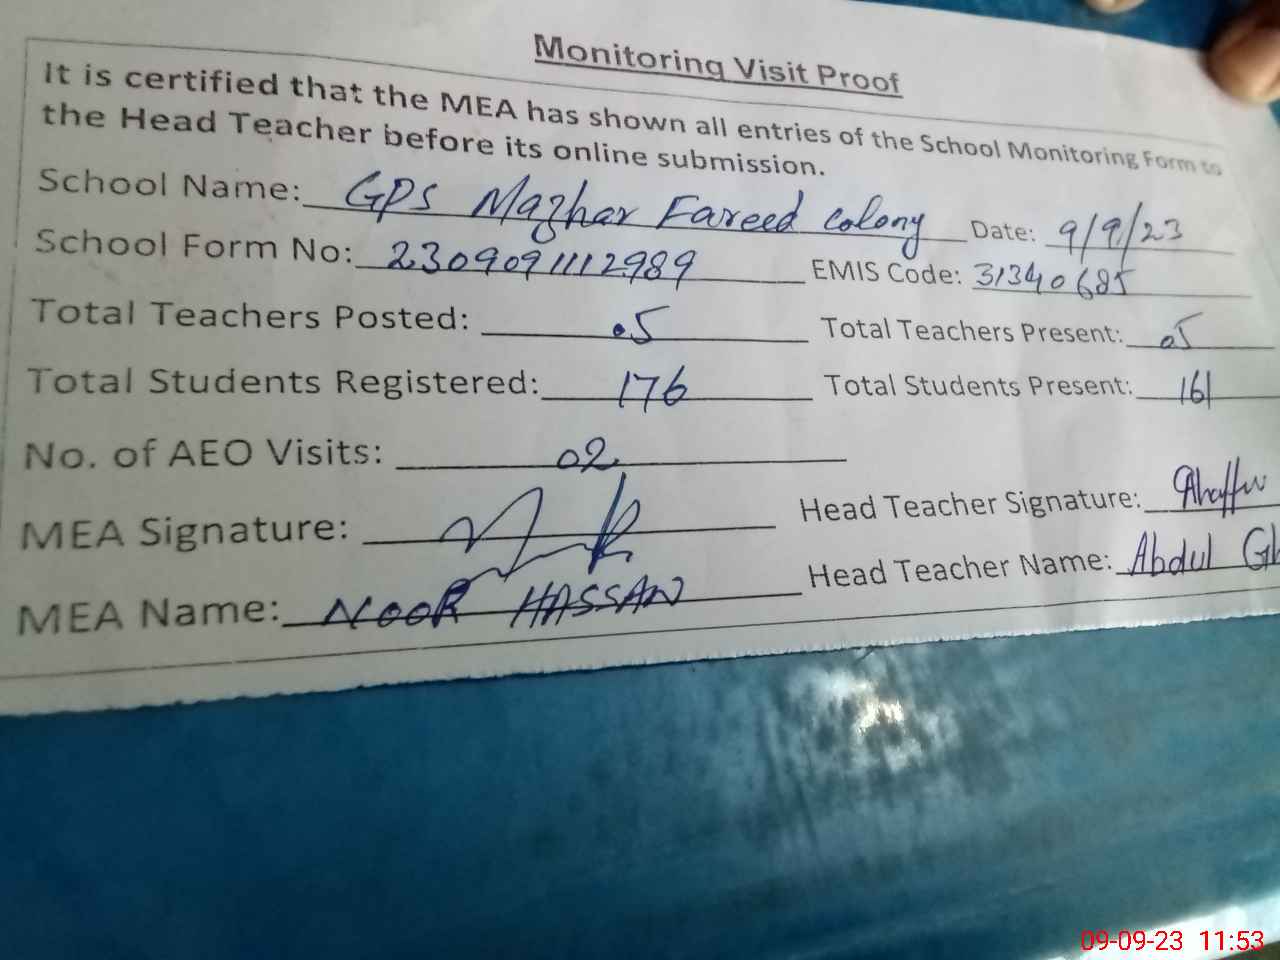 Monitoring Visit Proof
It is certified that the MEA has shown all entries of the School Monitoring Form to
the Head Teacher before its online submission.
School Name: GPS Mazhar Fareed colony Date: 9/9/23
School Form No: 2309091112989 EMIS Code: 31340685
Total Teachers Posted: 05 Total Teachers Present: 05
Total Students Registered: 176 Total Students Present: 161
No. of AEO Visits: 02
MEA Signature: Head Teacher Signature:
MEA Name: NOOR HASSAN Head Teacher Name: Abdul
09-09-23 11:53